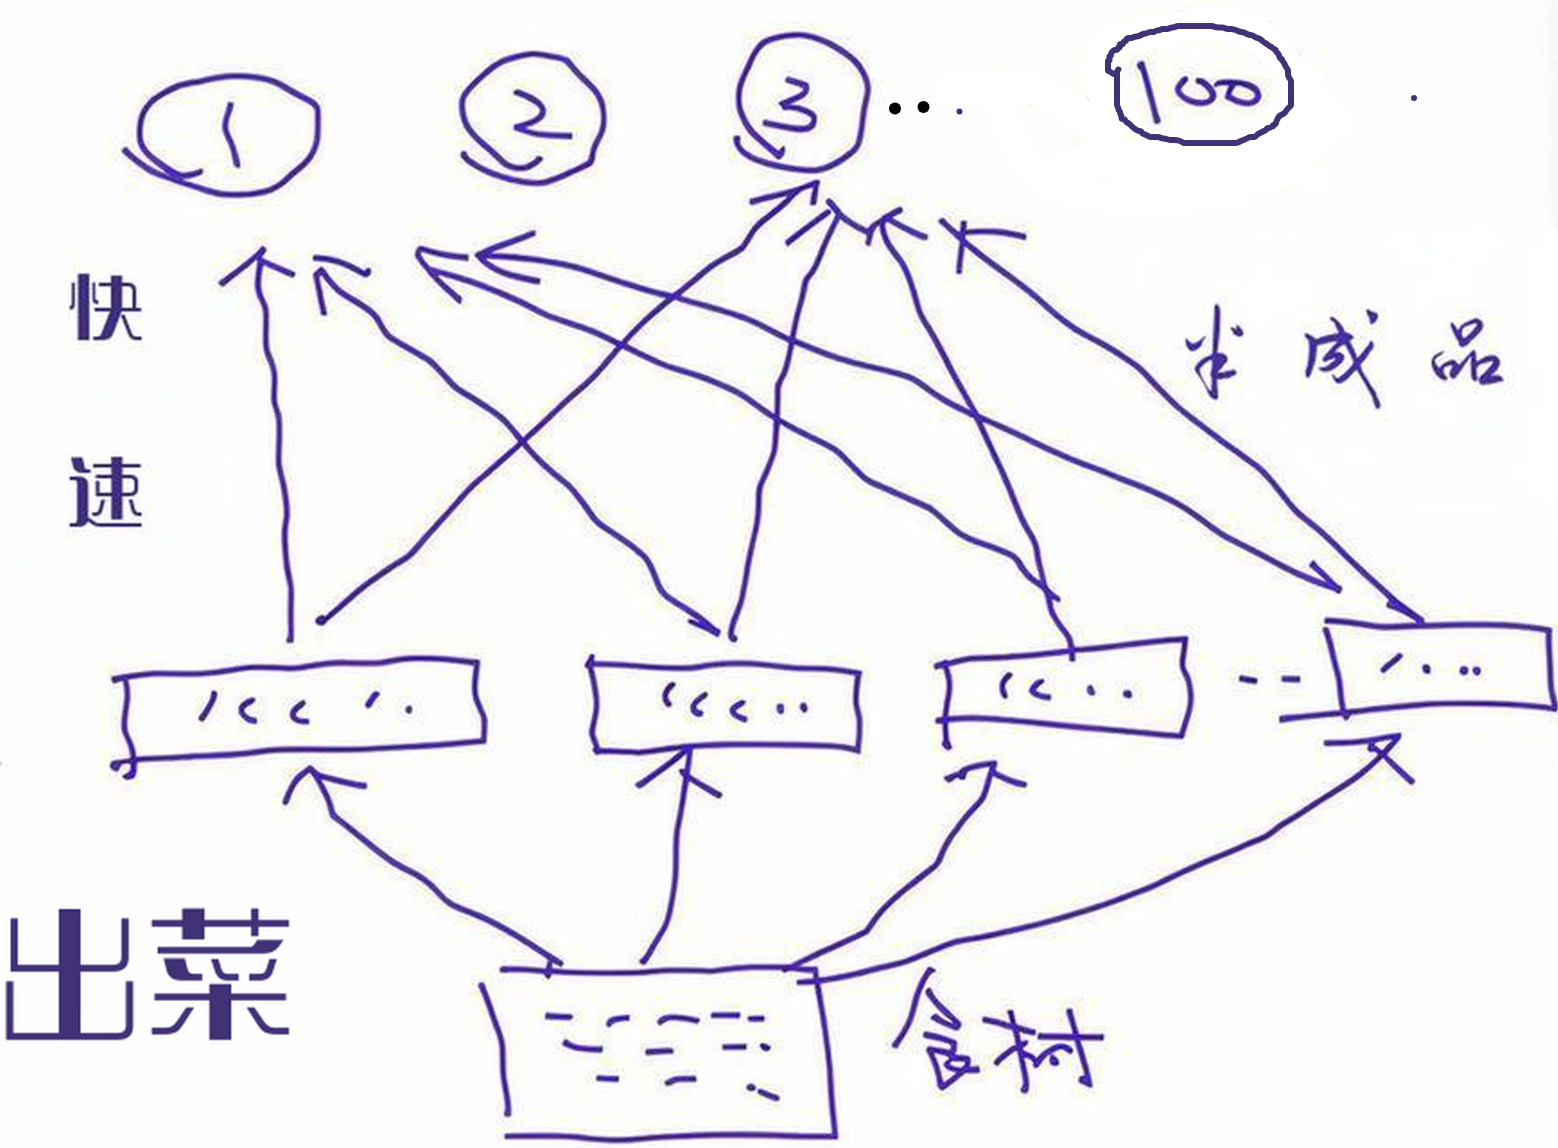 1 2 3 ... 100
快
速
半成品
出菜
食材